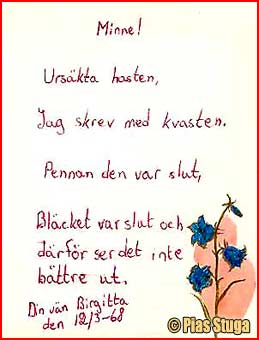 Minne!
Ursäkta hasten,
Jag skrev med kvasten.
Pennan den var slut,
Bläcket var slut och
därför ser det inte
bättre ut.
Din vän Birgitta
den 12/3-68
© Pias Stuga